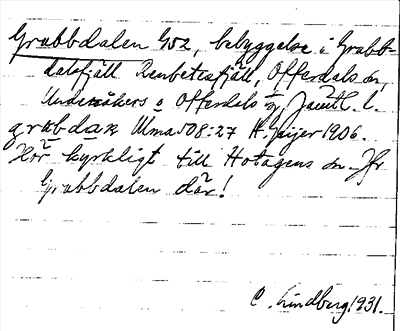 Grubbdalen G52, bebyggelse i Grubb-
dalsfjäll Renbetesfjäll, Offerdals sn,
Undersåkers o Offerdals tg, Jämtl. l.
grubdan Ulma 508:27 H. Geijer 1906.
Hör kyrkligt till Hotagens sn. Jfr
Grubbdalen där!
C. Lindberg 1931.